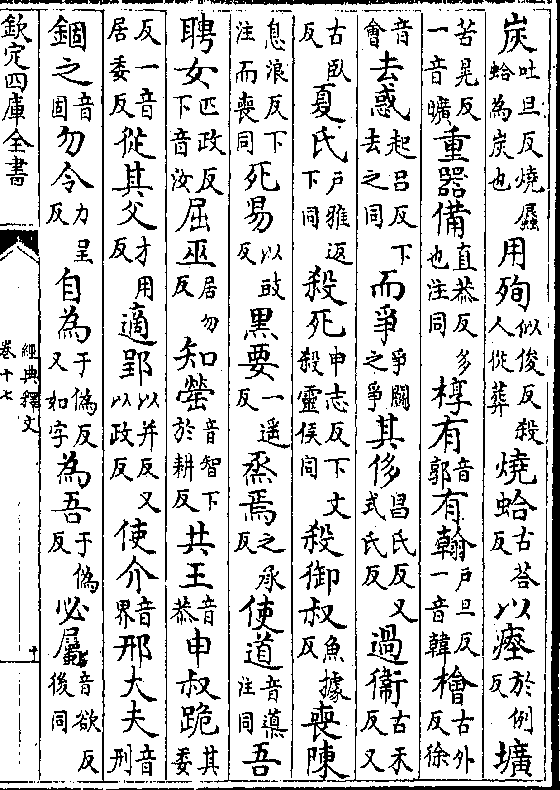 炭吐旦反燒蜃蛤為炭也用殉似俊反殺人從葬燒蛤古荅反以瘞於例反壙
苦晃反一音曠重器備直恭反多也注同椁有音郭有翰戶旦反一音韓檜古外反徐
音會去惑起呂反下去之同而爭爭鬬之爭其侈昌氏反又式氏反過衞古禾反又
古臥反夏氏戶雅返下同殺死申志反下文殺靈侯同殺御叔魚據反喪陳
息浪反下注而喪同死易以豉反黑要一遥反烝焉之承反使道音導注同吾
聘女匹政反下音汝屈巫居勿反知罃音智下於耕反共王音恭申叔跪其委
反一音居委反從其父才用反適郢以并反又以政反使介音界邢大夫音刑
錮之音固勿令力呈反自為于偽反又如字為吾于偽反必屬音欲反後同
欽定四庫全書
經典釋文
卷十七
十